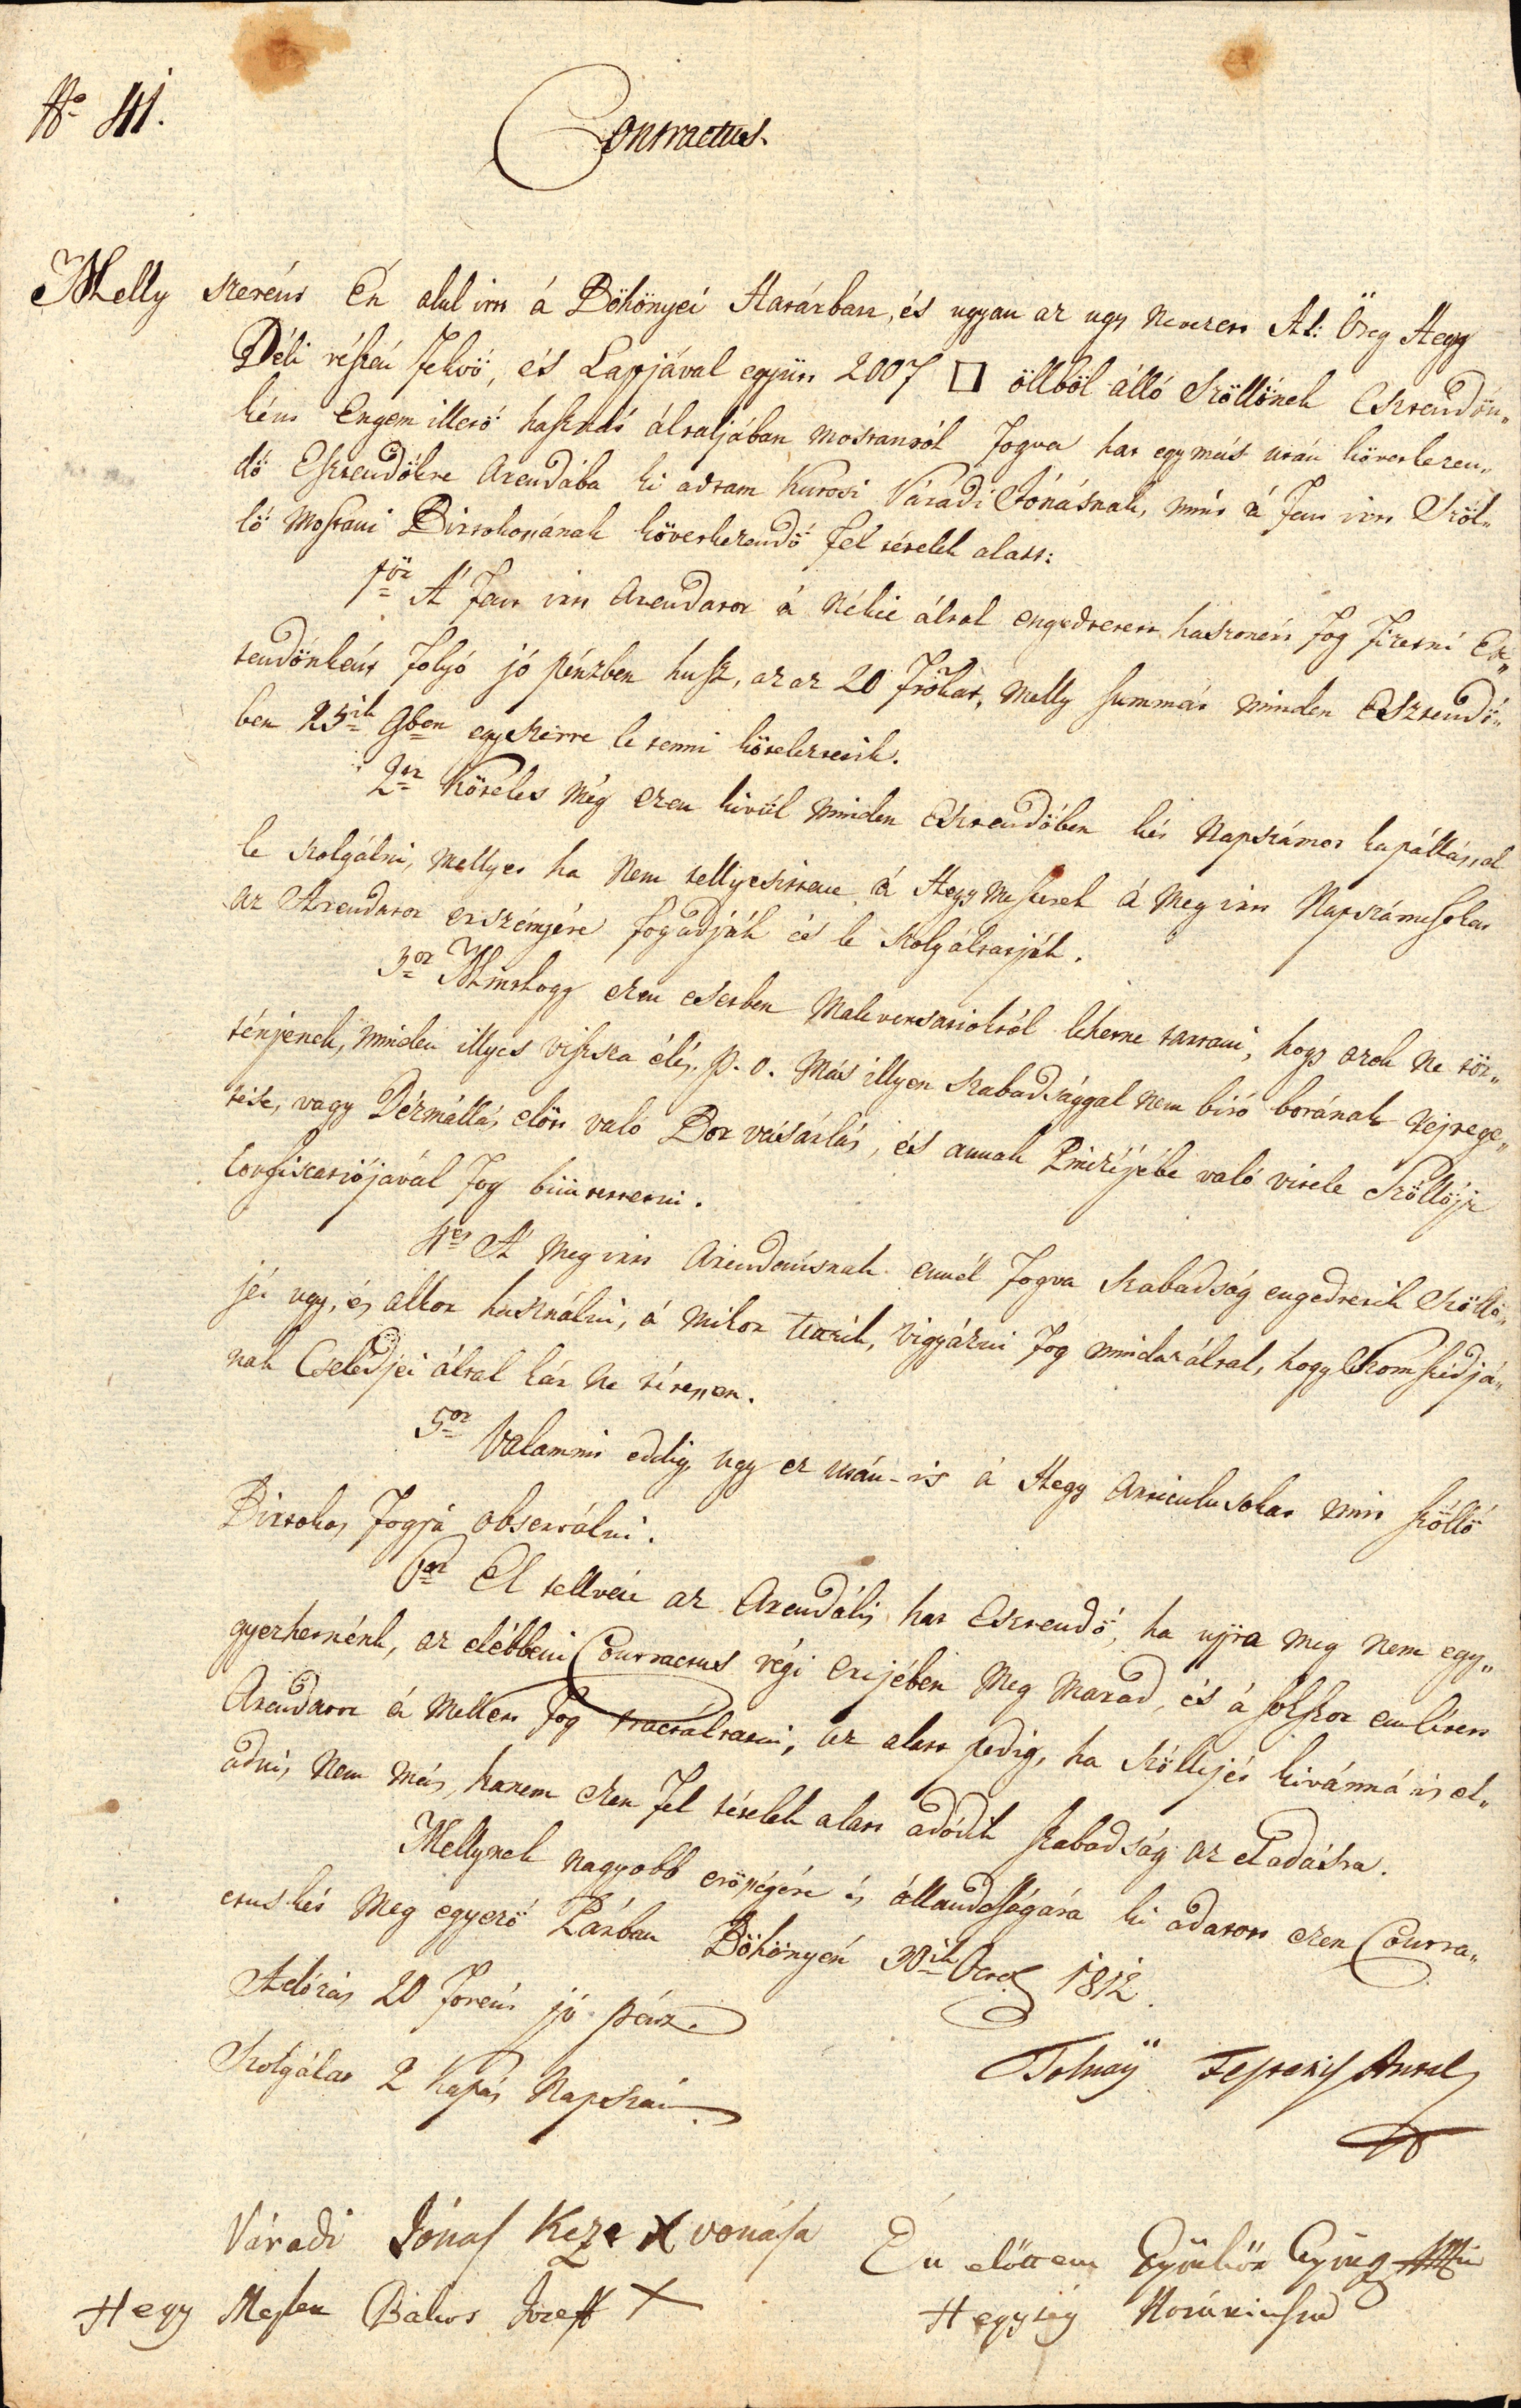 No 41.
Contractus.
Melly szerént Én alul irtt á Bőhönyei Határban, és ugyan az ugy nevezett Al: Öreg Hegy
Déli részén fekvö, és Lapjával együtt 2007 □ öllböl álló Szöllönek Esztendőn„
ként Engem illető hasznát általjában mostantól fogva hat egymás után következen„
dö Esztendökre Arendába ki adtam Kutosi Váradi Jónásnak, mint á fen irtt Szöl„
lö mostani Birtokossának következendö fel tételek alatt:
1ör A' fen irtt Arendator á Nékie által engedtetett haszonért fog fizetni Esz„
tendönként folyó jó pénzben husz, az az 20 frtokat, melly summát minden Esztendö„
ben 25ik 9ben egyszerre le tenni köteleztetik.
2or Köteles még ezen kivül minden Esztendőben két Napszámot kapállással
le szolgálni, mellyet ha nem tellyesittene á Hegy Mesterek á meg irtt Napszámosokat
az Arendator erszényére fogadják és le szolgáltatják.
3or Minthogy ezen esetben Maleversatioktól lehetne tartani, hogy azok ne tör„
ténjenek, minden illyes viszsza élés. p. o. Más illyen szabadsággal nem biró borának rejtege„
tése, vagy Dézmállás elött való Bor vásárlás, és annak Pinczéjébe való vitele Szöllöje
confiscatiójával fog büntettetni.
4er A' meg irtt Arendatornak ennél fogva szabadság engedtetik Szöllö„
jét ugy, és akkor használni, á mikor tetzik, vigyázni fog mindazáltal, hogy Szomszédjá„
nak Cselédjei által kár ne tétessen.
5ör Valamint eddig ugy ez után-is á Hegy Articulusokat mint szöllö
Birtokos fogja observálni.
6or El tellvén az Arendális hat Esztendö, ha ujra meg nem egy„
gyezhetnénk, az elébbeni Contractus régi erejében meg marad, és á sokszor emlitett
Arendator á mellett fog tractáltatni, az alatt pedig, ha Szöllejét kivánná is el„
adni, nem más, hanem ezen fel tételek alatt adódik szabadság az eladásra.
Mellynek nagyobb erösségére és állandoságára ki adatott ezen Contra„
ctus két meg egyező Párban Bőhönyén 30ik Octob 1812.
Adózás 20 forént jó pénz.
Szolgálat 2 kapás Napszám
Tolnaÿ Festetits Antal
Váradi Jónas Keze X vonása
Én előttem Gyürg
Hegy Mester Bakos Joseff X
Hegység Notáriussa